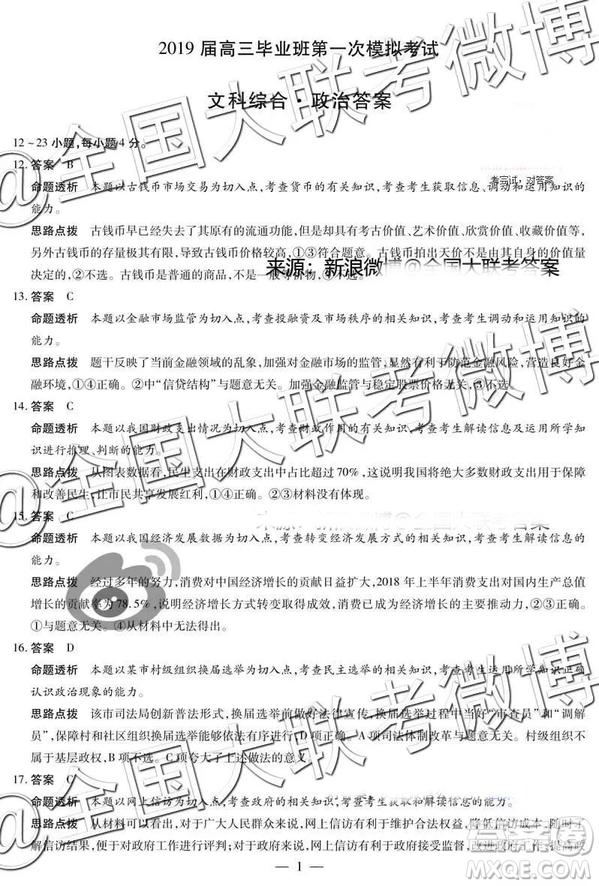 2019 届高三毕业班第一次模拟考试
文科综合·政治答案
12～23小题,每小题4分。
12. 答案 B
考完试,对答案
命题透析 本题以古钱币市场交易为切入点,考查货币的有关知识,考查考生获取信息、调动和运用知识的
能力。
思路点拨 古钱币早已经失去了其原有的流通功能,但是却具有考古价值、艺术价值、欣赏价值、收藏价值等,
另外古钱币的存量极其有限,导致古钱币价格较高,①③符合题意。古钱币的拍出天价不是由其自身的价值量
决定的,②不选。古钱币是普通的商品,不是一般等价物,④不选。
来源：新浪微博@全国大联考答案
13. 答案 C
命题透析 本题以金融市场监管为切入点,考查投融资及市场秩序的相关知识,考查考生调动和运用知识的
能力。
思路点拨 题干反映了当前金融领域的乱象,加强对金融市场的监管,显然有利于防范金融风险,营造良好金
融环境,①④正确。②中“信贷结构”与题意无关。加强金融监管与稳定股票价格无关,③不选。
14. 答案 C
命题透析 本题以我国财政支出情况为切入点,考查财政作用的有关知识,考查考生解读信息及运用所学知
识进行推理、判断的能力。
思路点拨 从图表数据看,民生支出在财政支出中占比超过70%,这说明我国将绝大多数财政支出用于保障
和改善民生,让市民共享发展红利,①④正确。②③材料没有体现。
15. 答案 C
来源：新浪微博@全国大联考答案
命题透析 本题以我国经济发展数据为切入点,考查转变经济发展方式的相关知识,考查考生解读信息的能
力。
思路点拨 经过多年的努力,消费对中国经济增长的贡献日益扩大,2018年上半年消费支出对国内生产总值
增长的贡献率为78.5%,说明消费对经济增长的基础性作用增强,经济增长方式有所转变,②③正确。
①与题意无关。④从材料中无法得出。
16. 答案 D
命题透析 本题以某市村级组织换届选举为切入点,考查民主选举的相关知识,考查考生运用所学知识正确
认识政治现象的能力。
思路点拨 该市司法局创新普法形式,换届选举前做好法律宣传,换届选举中做好“审查员”和“调解
员”,保障村和社区组织换届选举能够依法有序进行,D项正确。A项司法体制改革与题意无关。村级组织不
属于基层政权,B项不选。C项夸大了上述做法的意义。
17. 答案 C
命题透析 本题以网上信访为切入点,考查政府的相关知识,考查考生获取和解读信息的能力。
思路点拨 从材料可以看出,对于广大人民群众来说,网上信访有利于维护合法权益,降低信访成本,随时了
解信访结果,便于对政府工作进行评判;对于政府来说,有利于改进工作作风,创新政府工作方式,提高政
— 1 —
@全国大联考微博